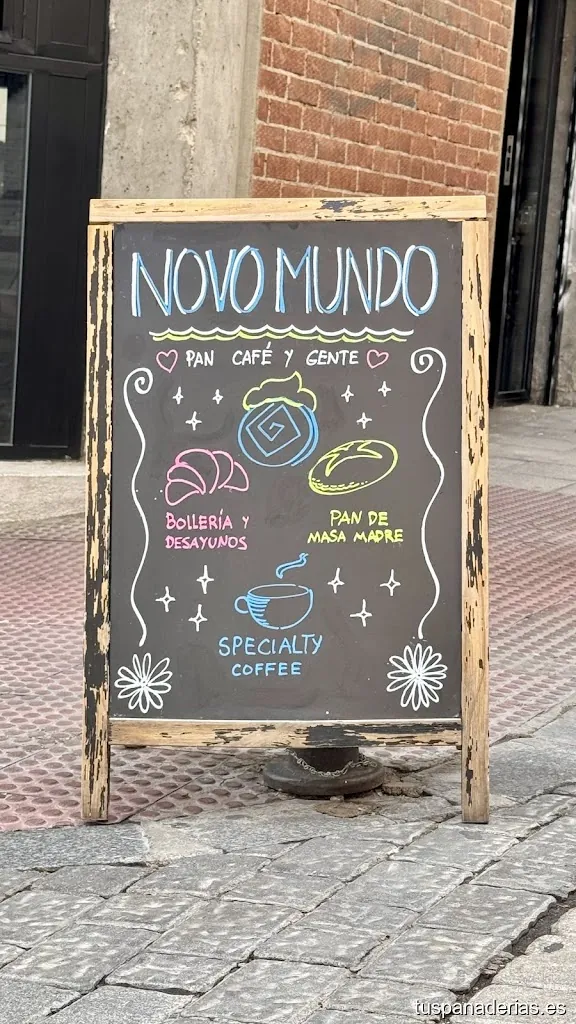 NOVO MUNDO
PAN CAFÉ Y GENTE
BOLLERÍA Y
DESAYUNOS
PAN DE
MASA MADRE
SPECIALTY
COFFEE
tuspanaderias.es